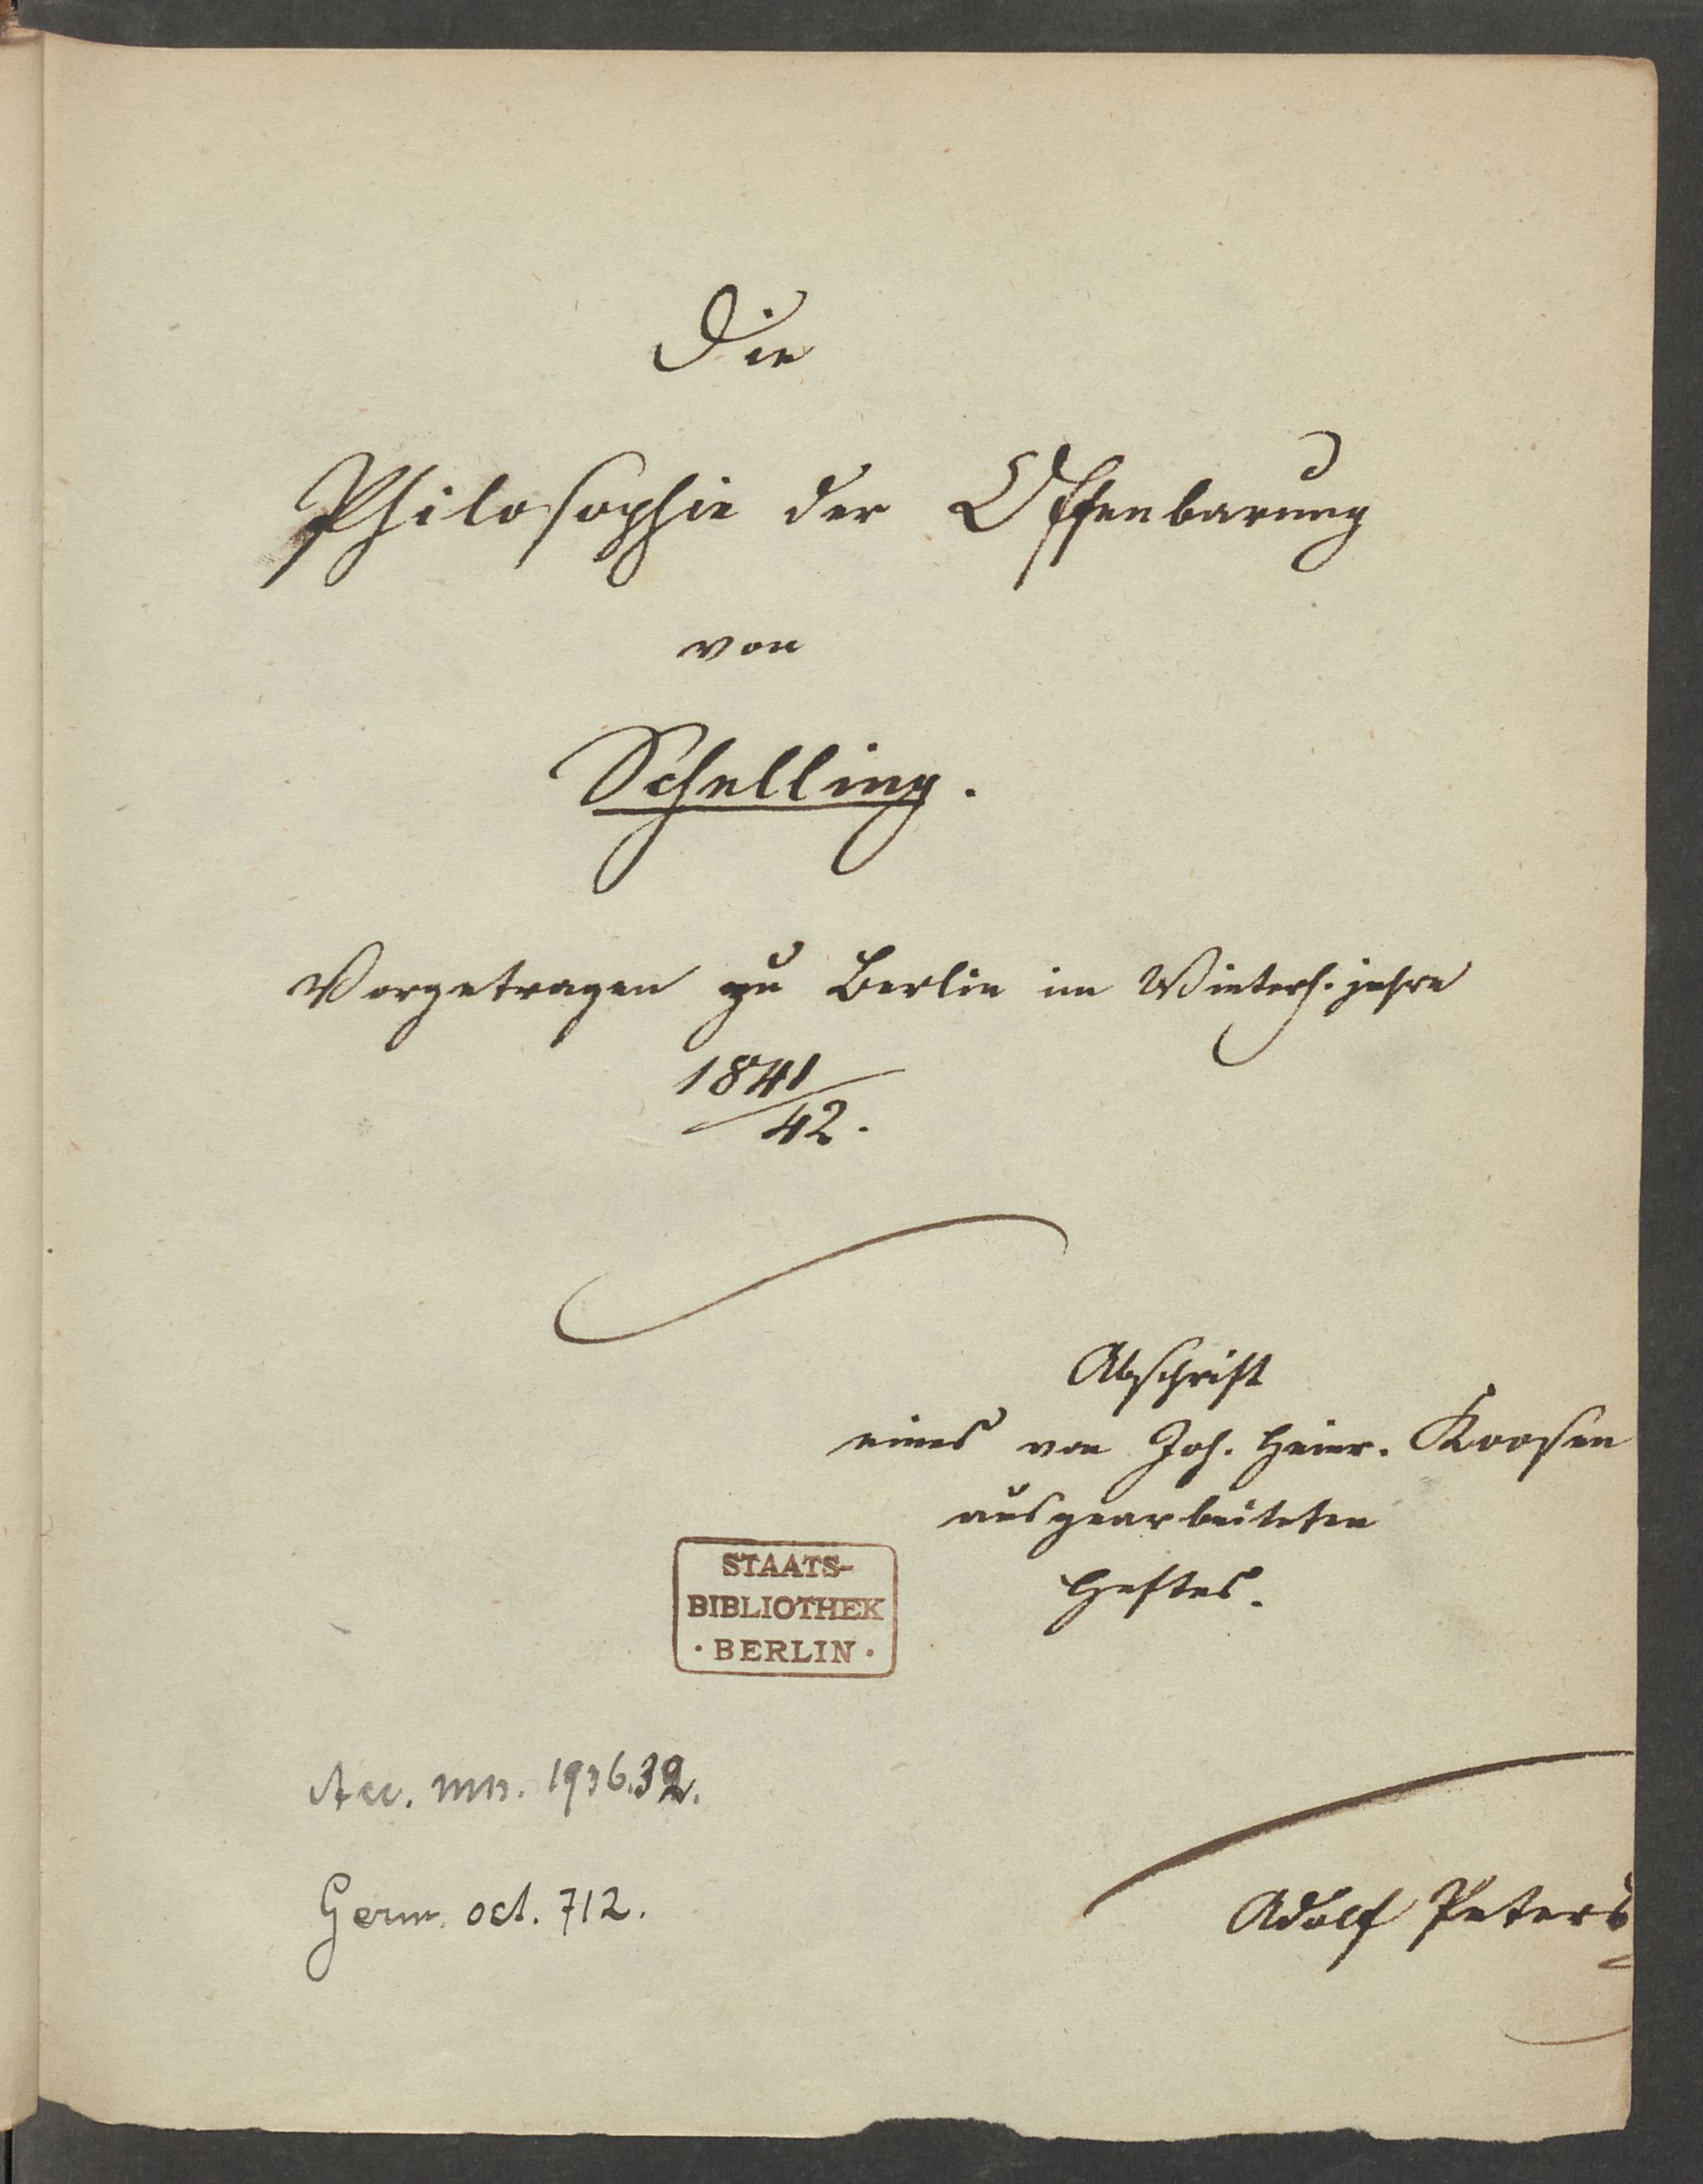 Die
Philosophie der Offenbarung
von
Schelling.
Vorgetragen zu Berlin im Winterh. jahre
1841/42.
Abschrift
eines von Joh. Heinr. Koosen
ausgearbeiteten
Heftes.
STAATS-
BIBLIOTHEK
· BERLIN ·
Acc. ms. 1936.32.
Germ. oct. 712.
Adolf Peters